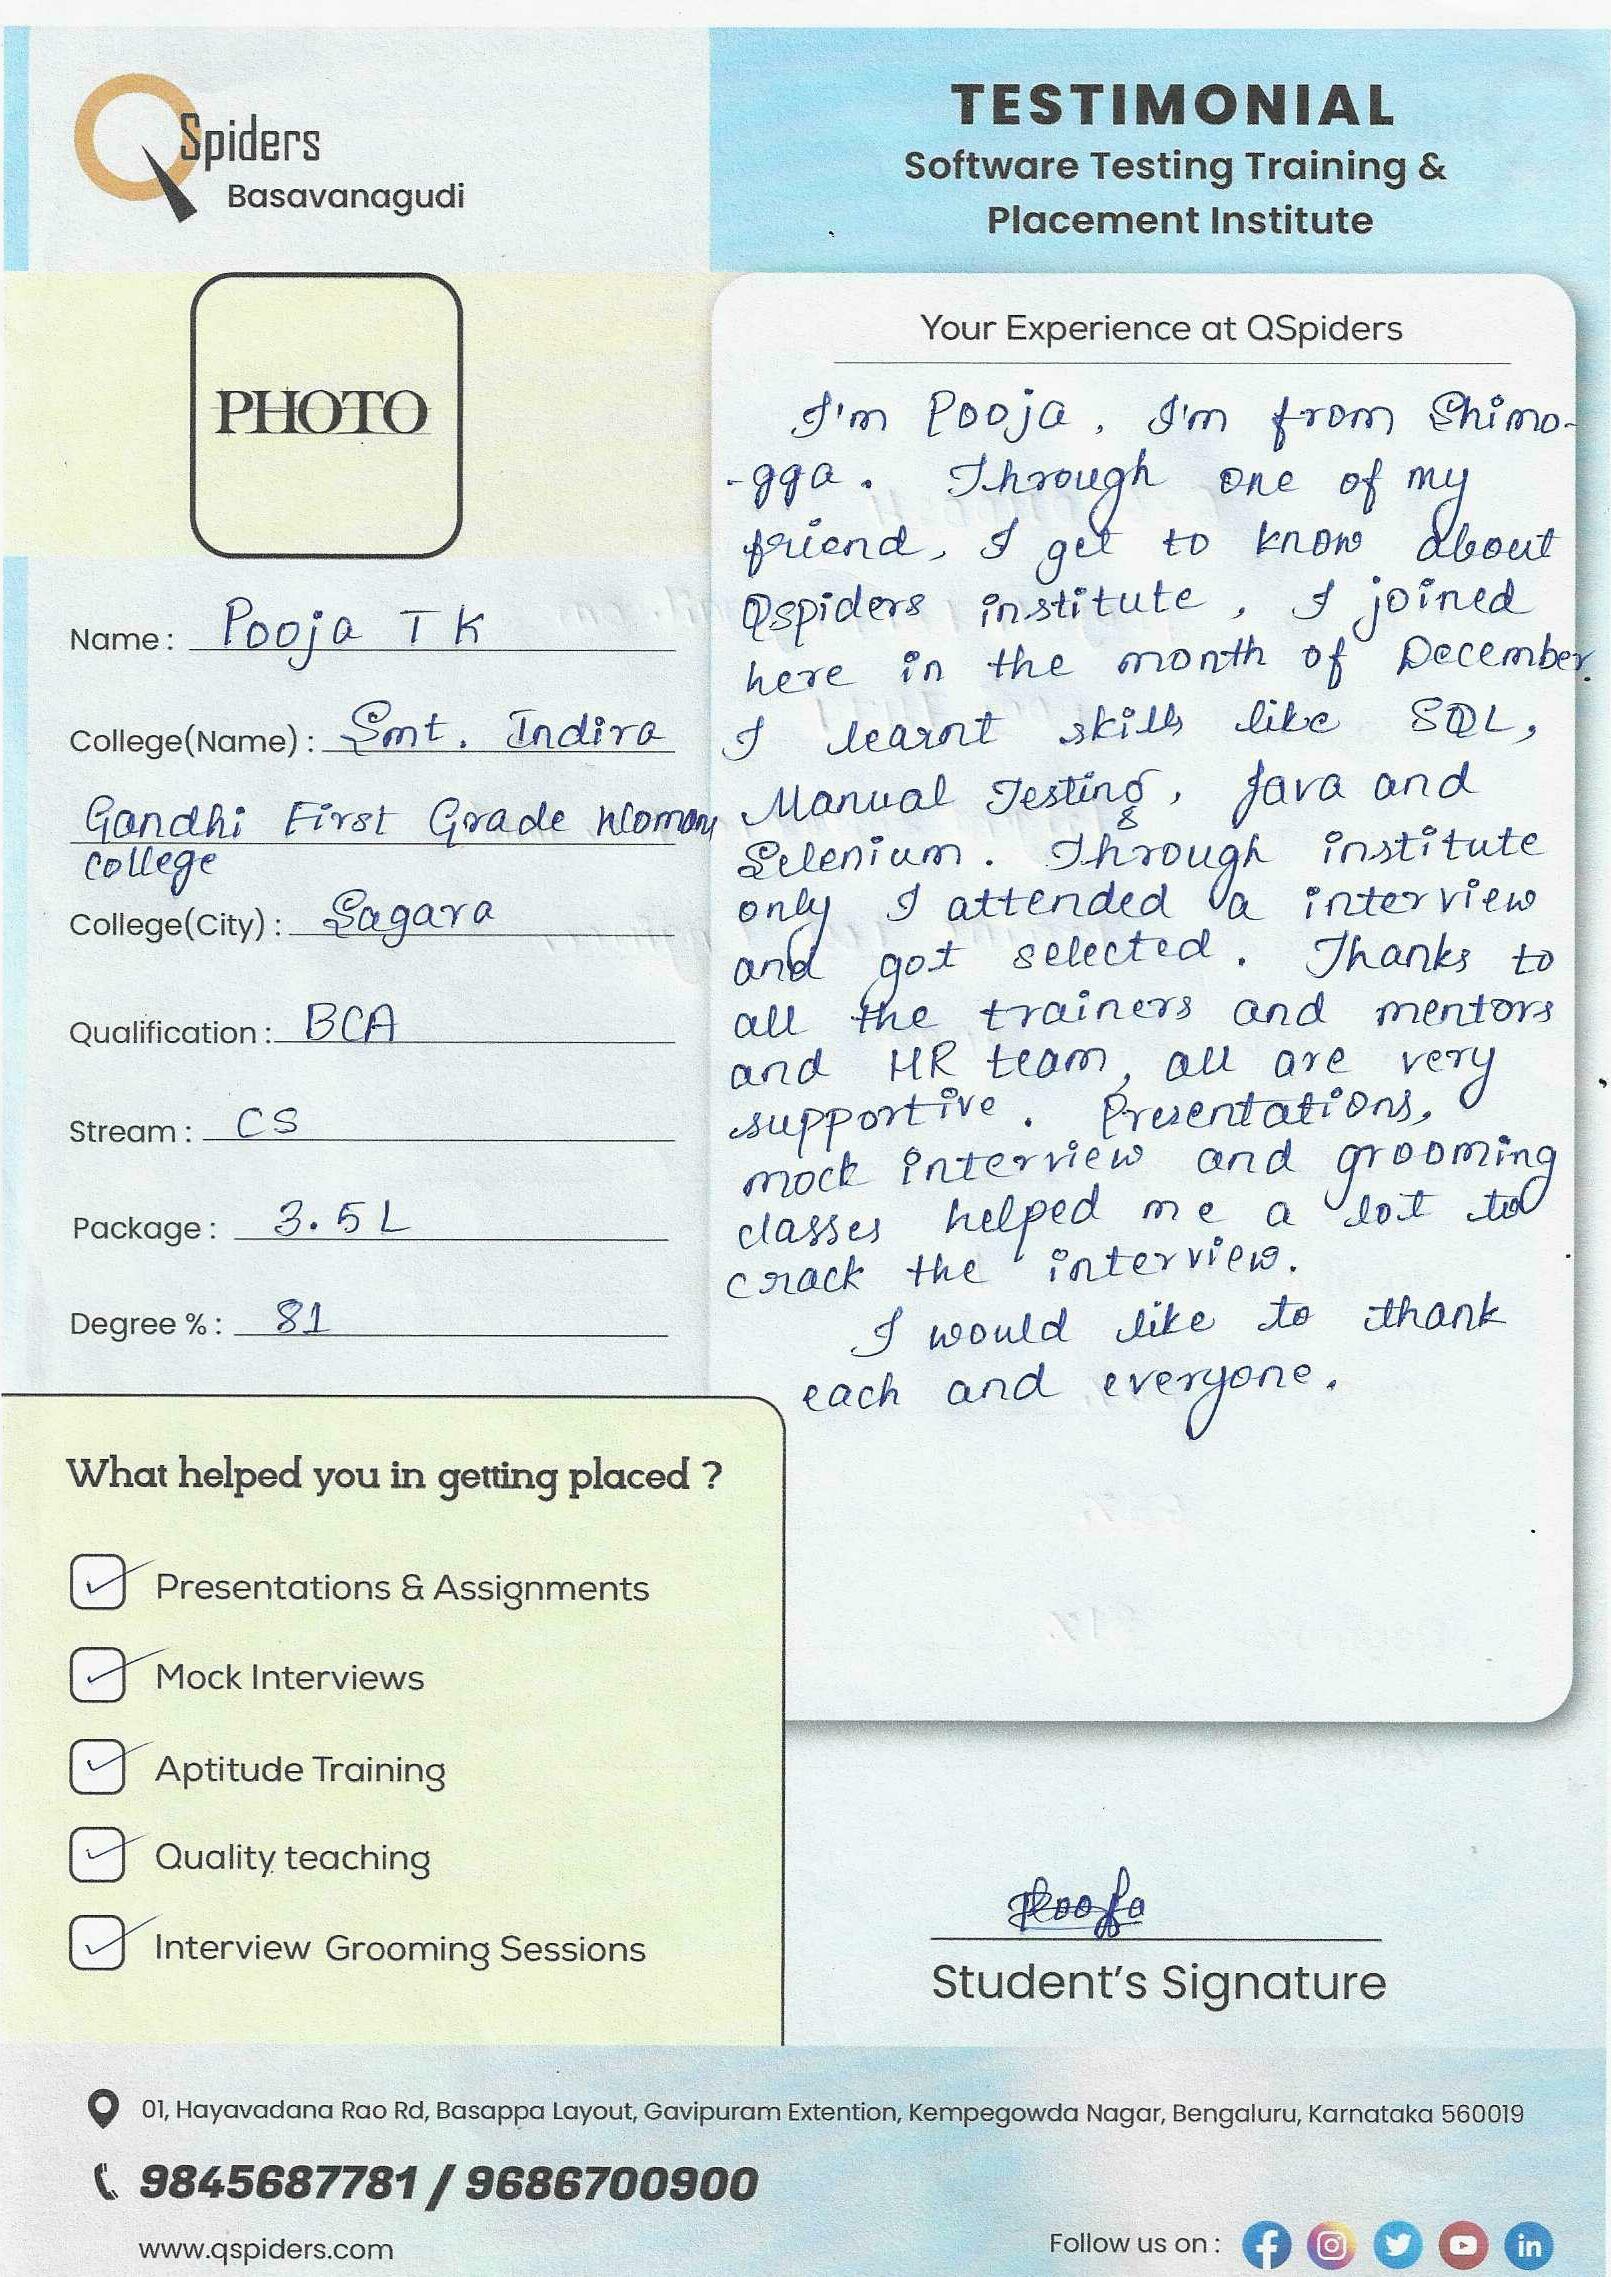 QSpiders
Basavanagudi
TESTIMONIAL
Software Testing Training &
Placement Institute
PHOTO
Name : Pooja T K
College(Name) : Smt. Indira
Gandhi First Grade Woman
college
College(City) : Sagara
Qualification : BCA
Stream : CS
Package : 3.5 L
Degree % : 81
Your Experience at QSpiders
I'm Pooja, I'm from Shimo-
-gga. Through one of my
friend, I get to know about
Qspiders institute, I joined
here in the month of December.
I learnt skills like SQL,
Manual Testing, Java and
Selenium. Through institute
only I attended a interview
and got selected. Thanks to
all the trainers and mentors
and HR team, all are very
supportive. Presentations,
mock interview and grooming
classes helped me a lot to
crack the interview.
I would like to thank
each and everyone.
What helped you in getting placed ?
Presentations & Assignments
Mock Interviews
Aptitude Training
Quality teaching
Interview Grooming Sessions
Pooja
Student's Signature
01, Hayavadana Rao Rd, Basappa Layout, Gavipuram Extention, Kempegowda Nagar, Bengaluru, Karnataka 560019
9845687781 / 9686700900
www.qspiders.com
Follow us on :